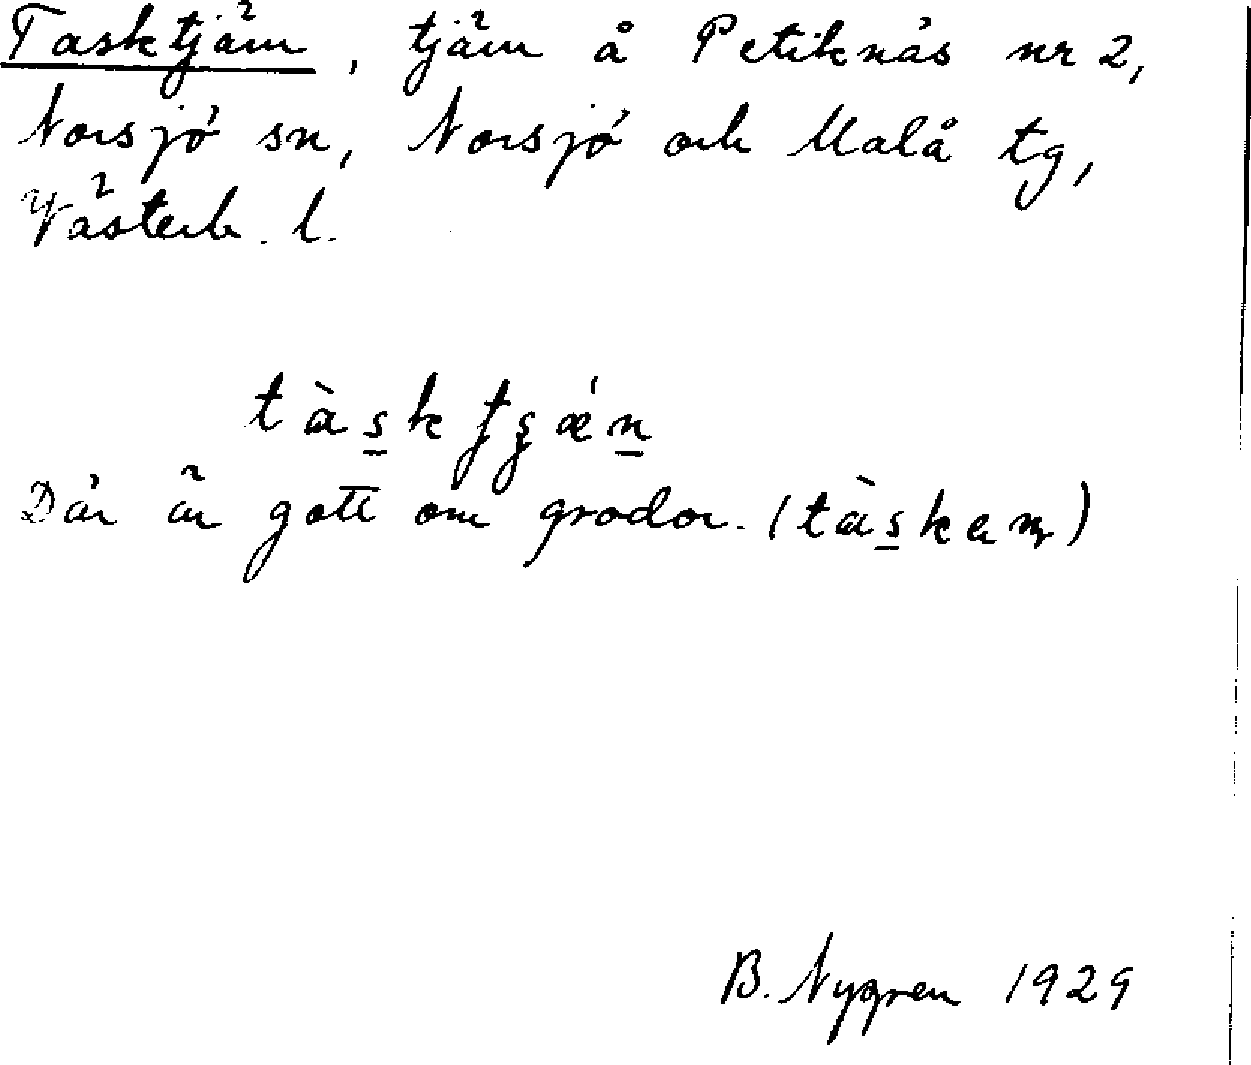 Tasktjärn, tjärn å Petiknäs nr 2,
Norsjö sn, Norsjö och Malå tg,
Västerb. l.
tàsktjǽn
Där är gott om grodor. (tàskan)
B. Nygren 1929